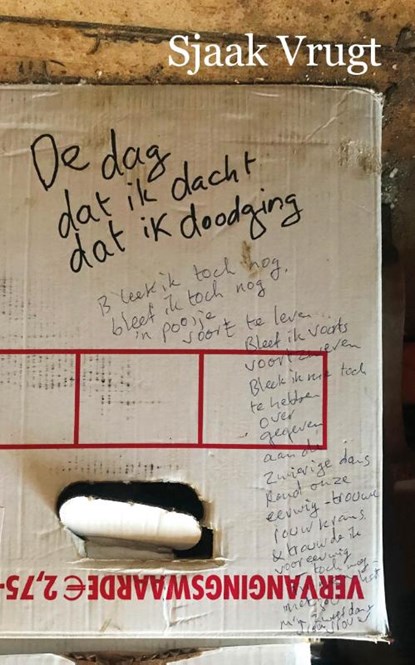 Sjaak Vrugt
De dag
dat ik dacht
dat ik doodging
Bleek ik toch nog.
bleef ik toch nog
'n poosje
voort te leven
Bleef ik voorts
voort
Bleek ik me toch
te hebben
over
gegeven
aan de
zwierige dans
Rond onze
eeuwig-trouwe
rouwkrans
& trouwde ik
voor eeuwig
toch nog
VERVANGINGSWAARDE € 2,75-